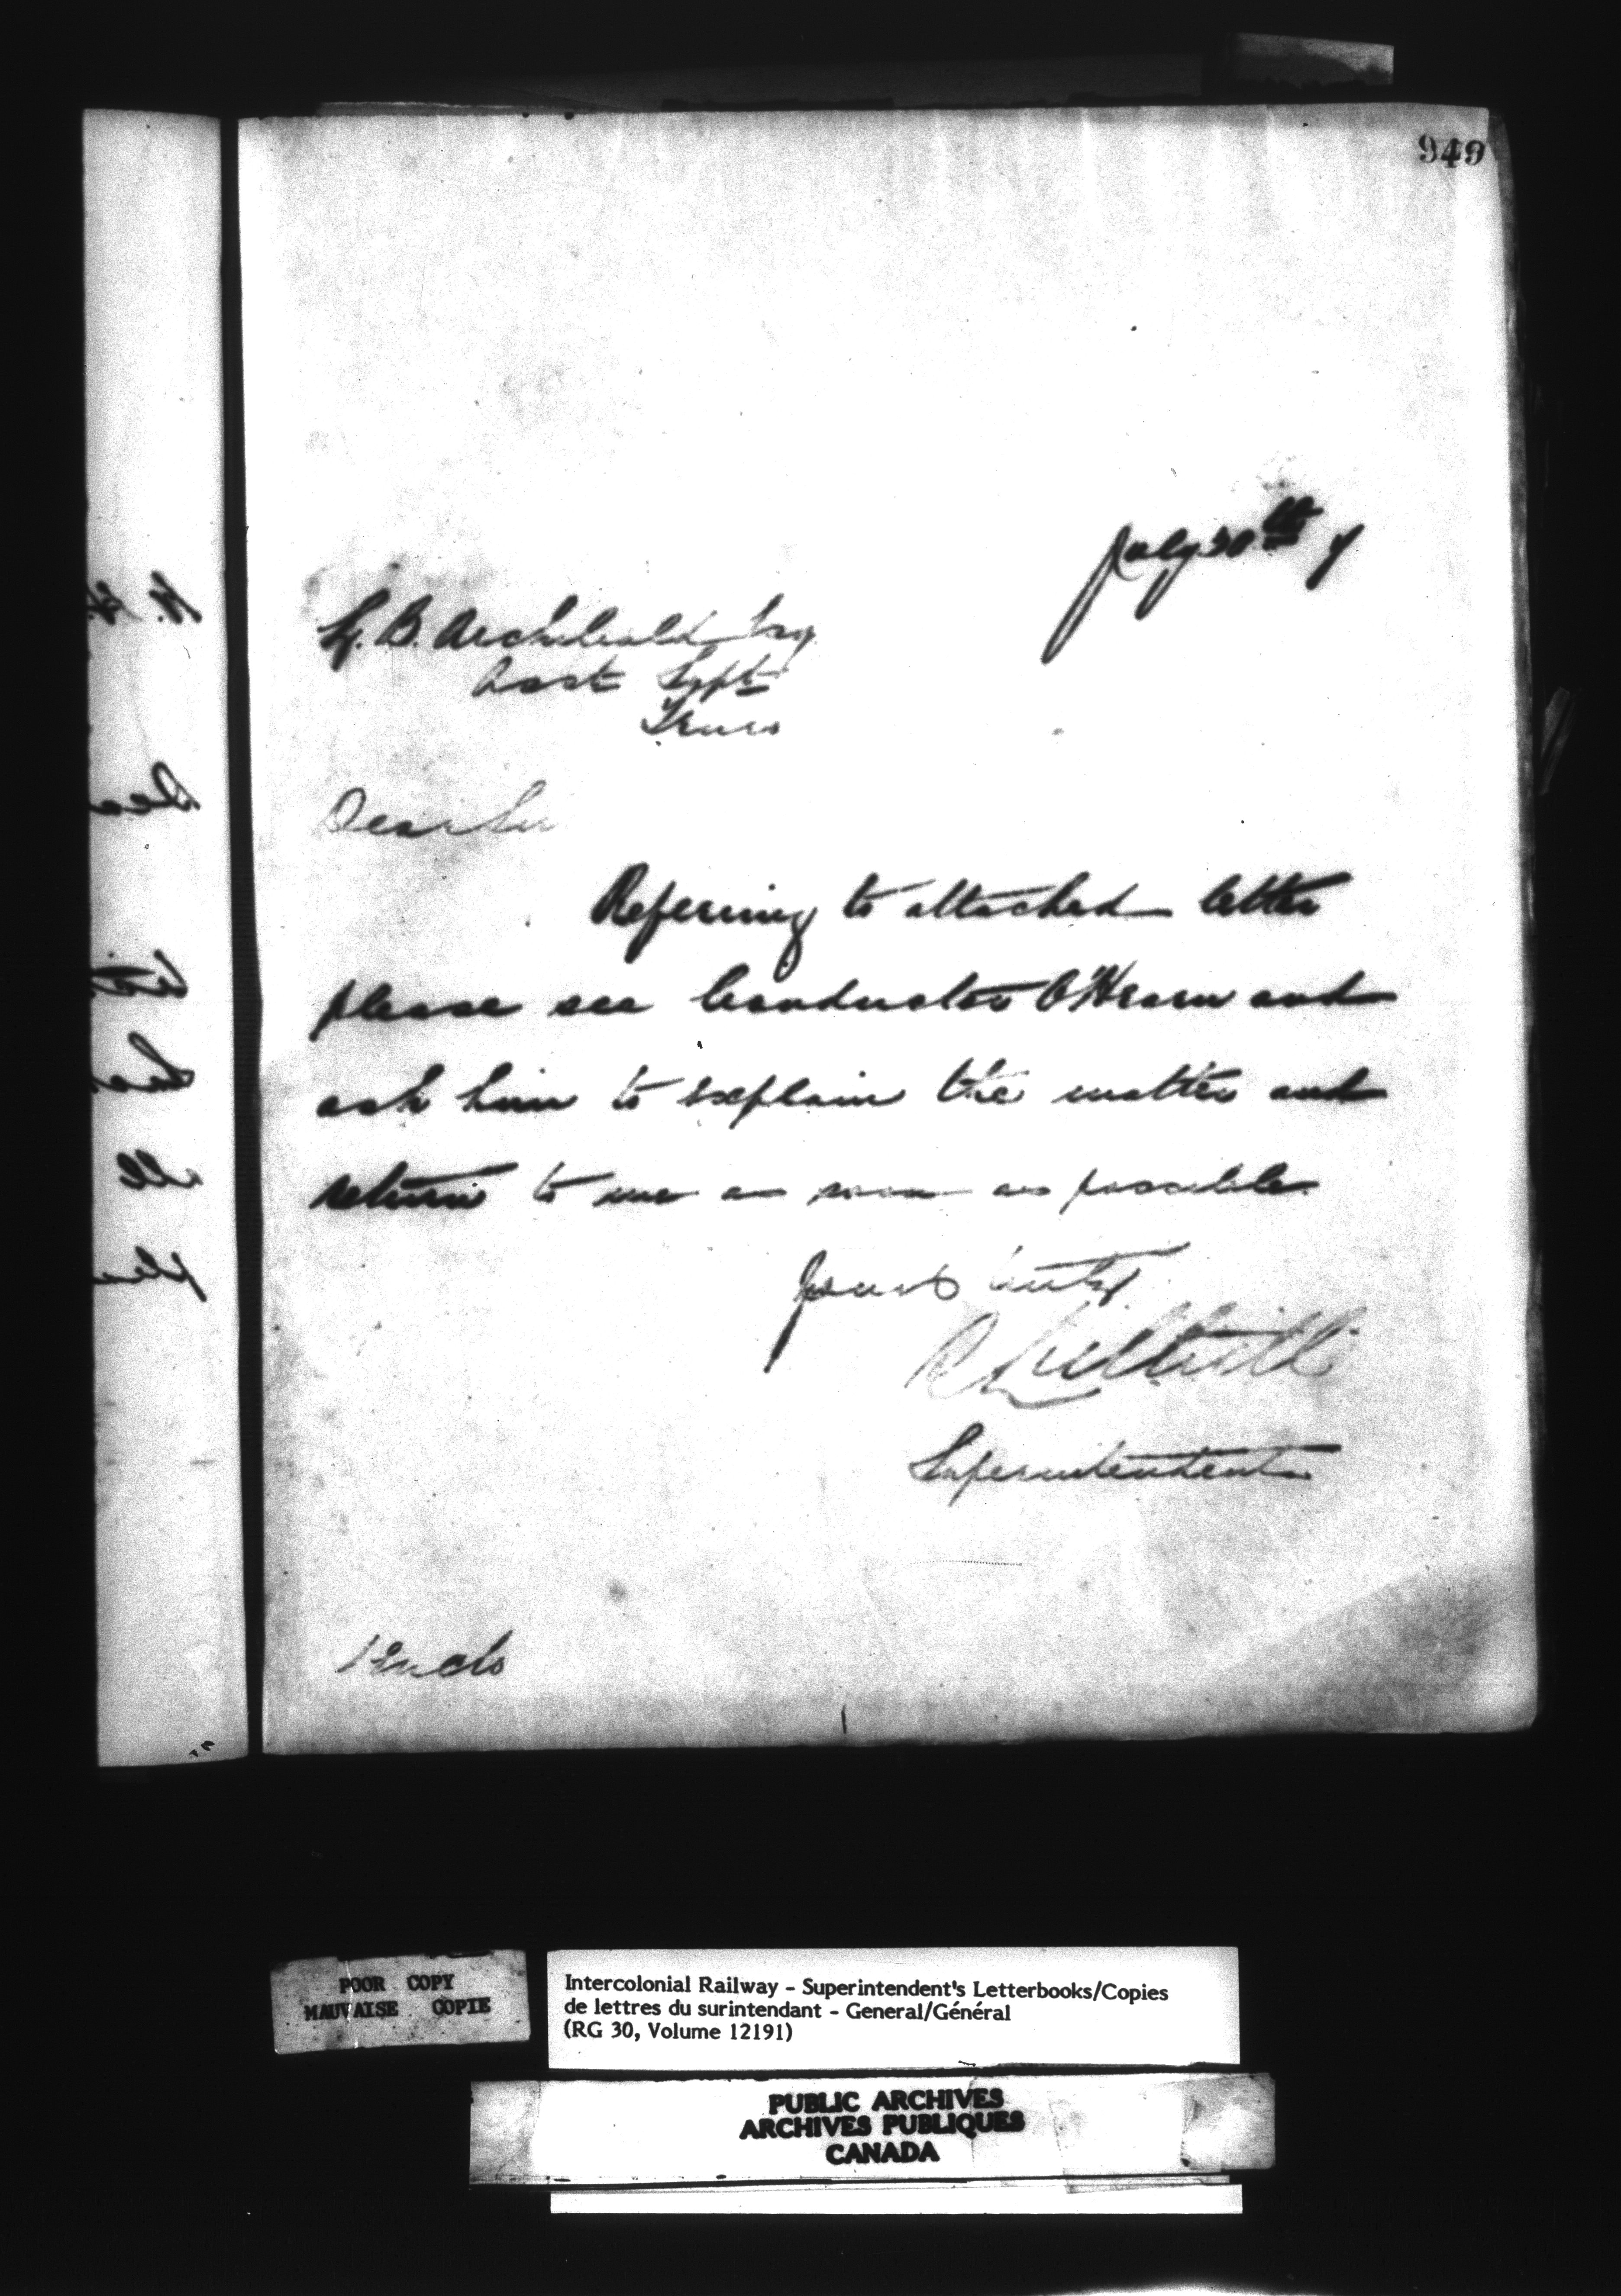 949
July 30th
Y. B. Archibald Esq
Asst Supt
Truro
Dear Sir
Referring to attached letter
please see Conductor O'Hearn and
ask him to explain the matter and
return to me as soon as possible
Yours truly
Superintendent
1 Enclo
POOR COPY
MAUVAISE COPIE
Intercolonial Railway - Superintendent's Letterbooks/Copies
de lettres du surintendant - General/Général
(RG 30, Volume 12191)
PUBLIC ARCHIVES
ARCHIVES PUBLIQUES
CANADA